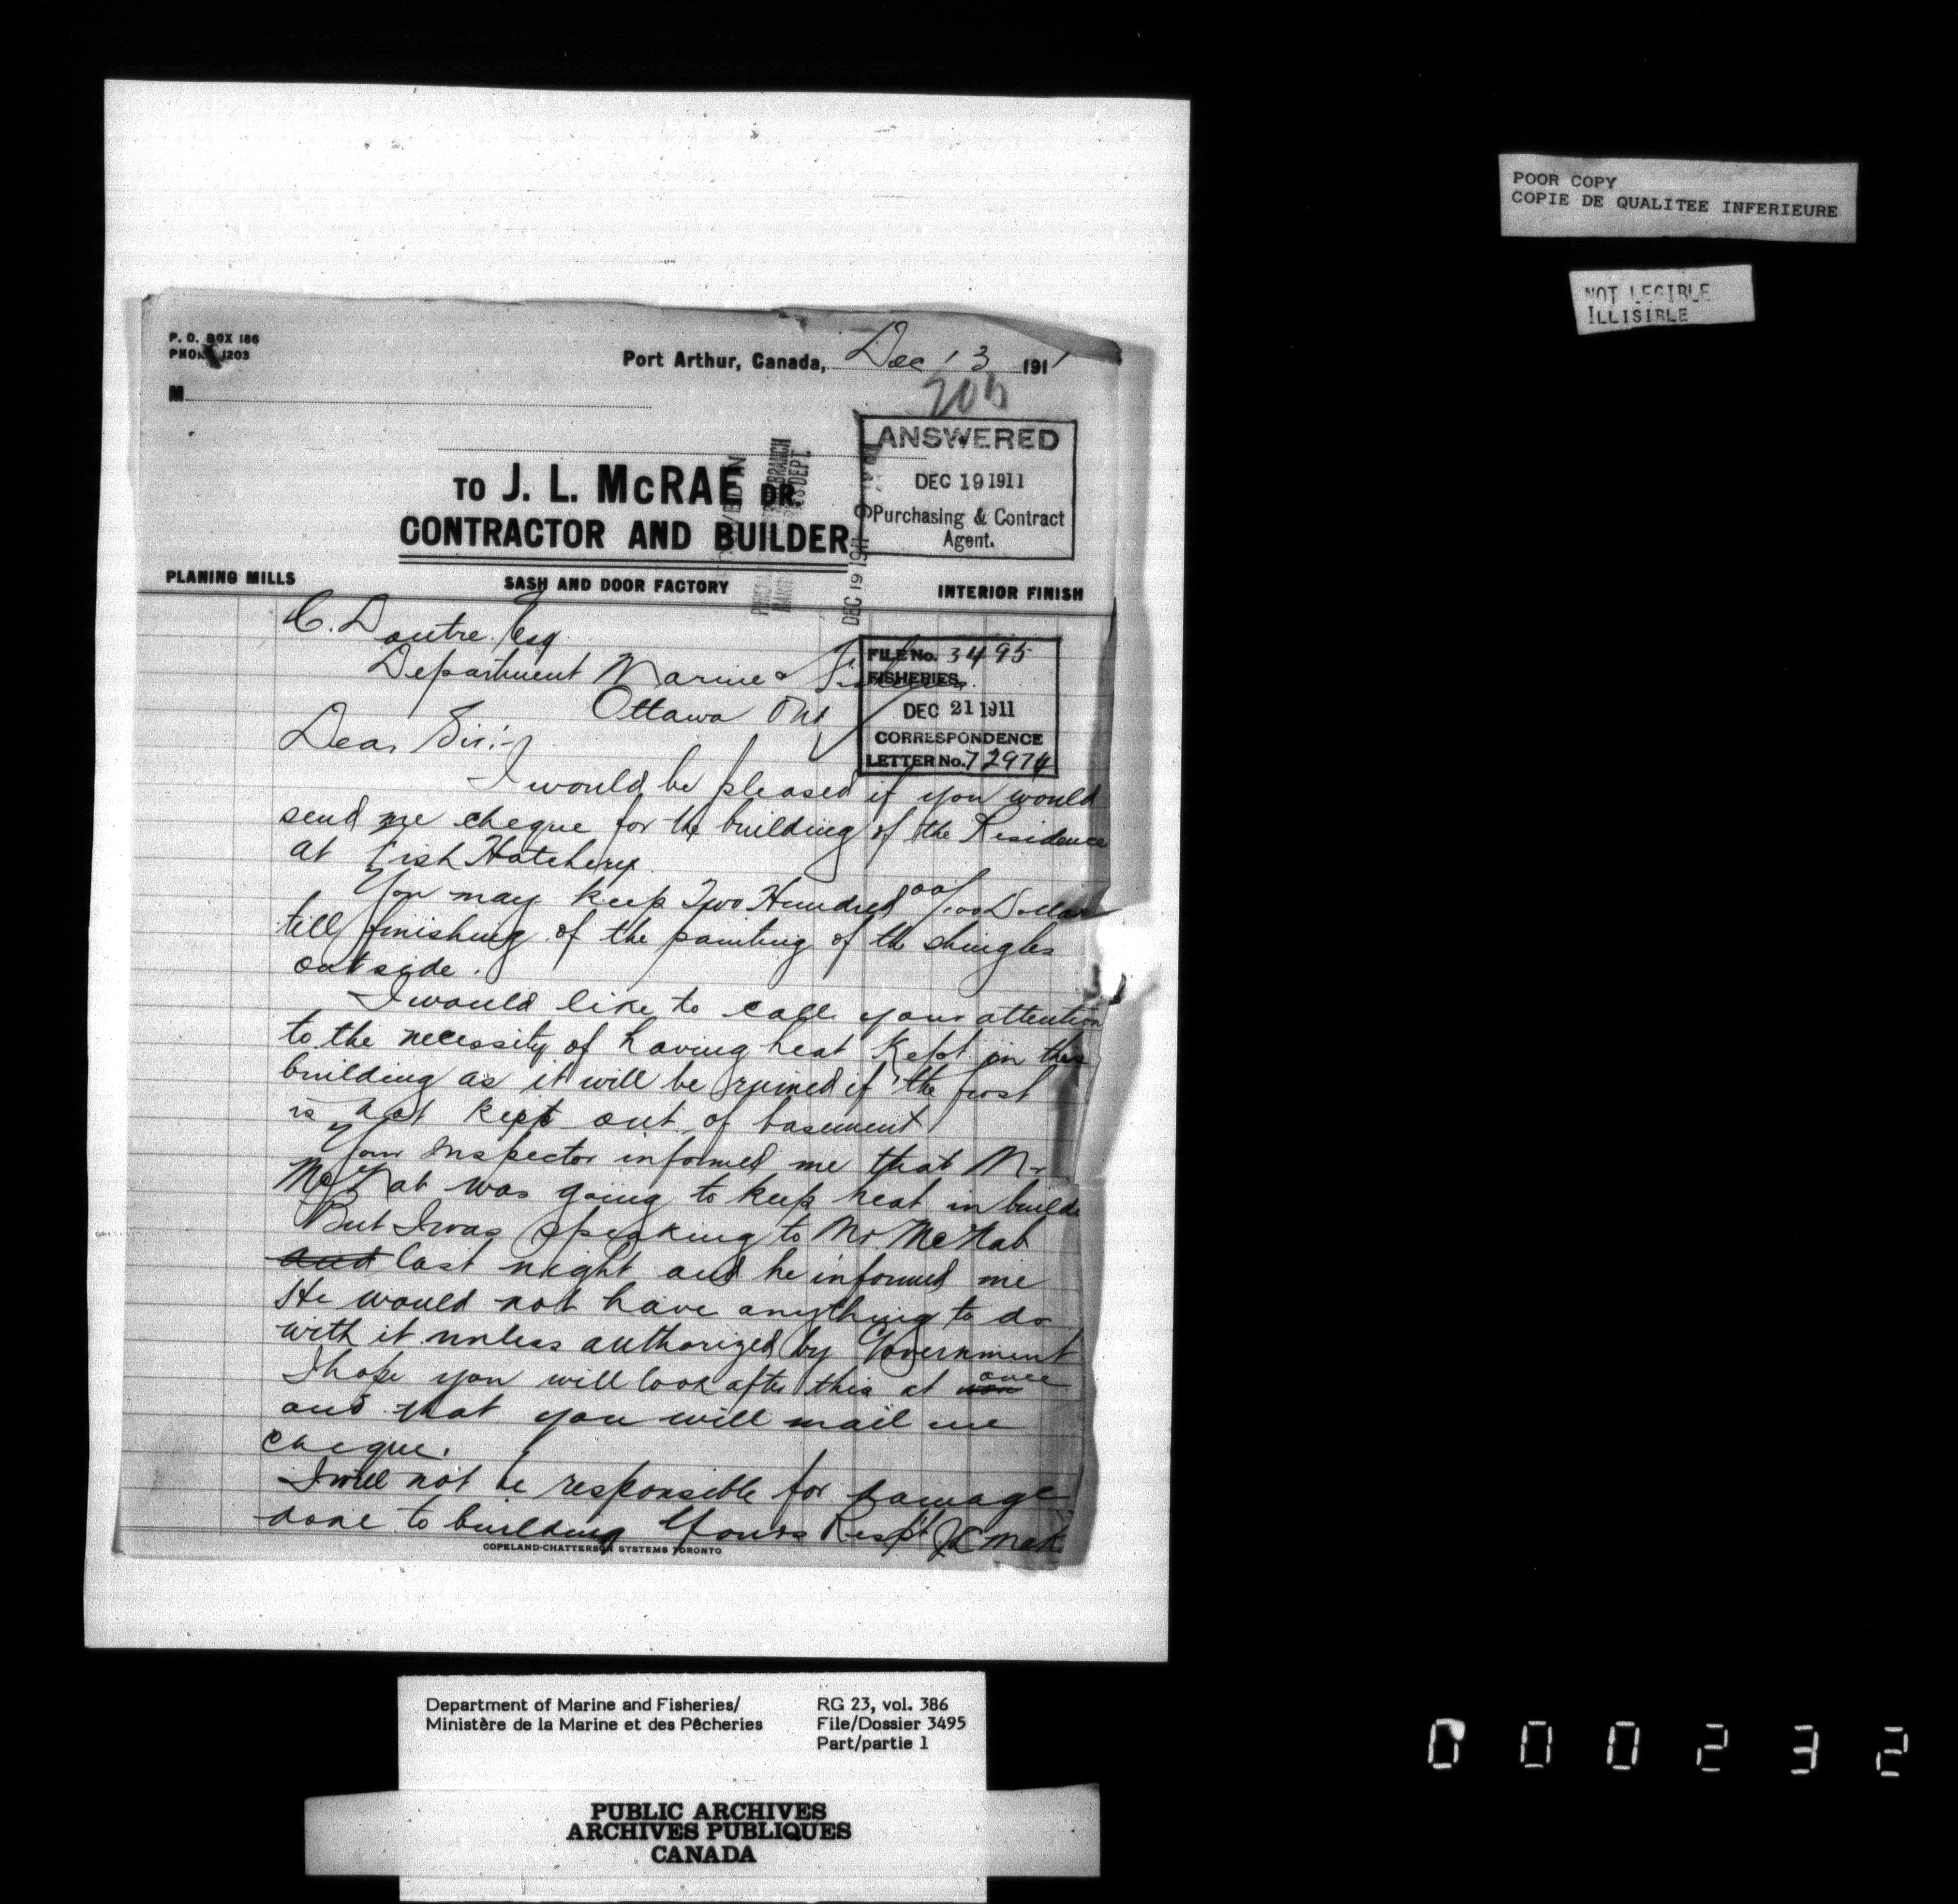 POOR COPY
COPIE DE QUALITEE INFERIEURE
NOT LEGIBLE
ILLISIBLE
P. O. BOX 186
PHONE 1203
Port Arthur, Canada, Dec 13 1911
M
ANSWERED
DEC 19 1911
Purchasing & Contract
Agent.
TO J. L. McRAE DR.
CONTRACTOR AND BUILDER
DEC 19 1911
PLANING MILLS SASH AND DOOR FACTORY INTERIOR FINISH
C. Doutre. Esq
Department Marine & Fisheries.
Ottawa Ont
FILE No. 3495
FISHERIES
DEC 21 1911
CORRESPONDENCE
LETTER No. 72974
Dear Sir:-
I would be pleased if you would
send me cheque for the building of the Residence
at Fish Hatchery.
You may keep Two Hundred 00/100 Dollars
till finishing of the painting of the shingles
outside.
I would like to call your attention
to the necessity of having heat kept in this
building as it will be ruined if the frost
is not kept out of basement
Your Inspector informed me that Mr
McNab was going to keep heat in build
But I was speaking to Mr. McNab
and last night and he informed me
He would not have anything to do
with it unless authorized by Government
I hope you will look after this at once
and that you will mail me
cheque.
I will not be responsible for damage
done to building Yours Respt JL McR
COPELAND-CHATTERSON SYSTEMS TORONTO
Department of Marine and Fisheries/
Ministère de la Marine et des Pêcheries
RG 23, vol. 386
File/Dossier 3495
Part/partie 1
PUBLIC ARCHIVES
ARCHIVES PUBLIQUES
CANADA
000232